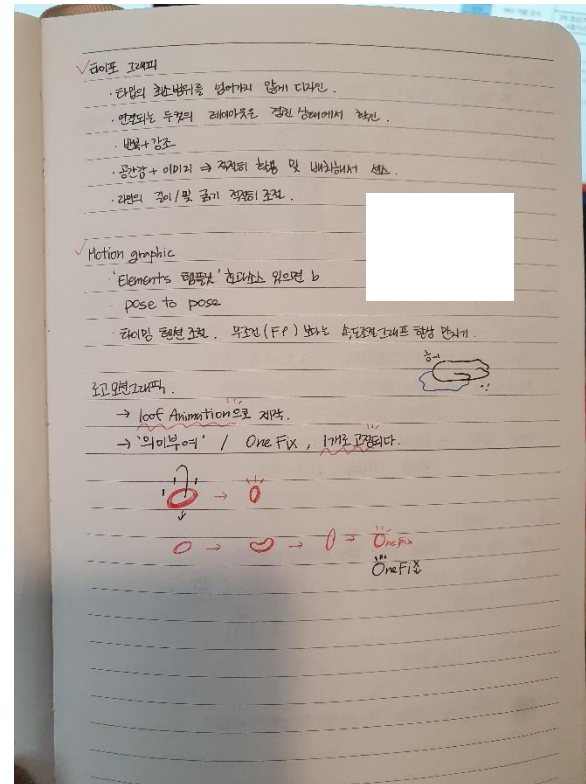 타이포 그래피
· 타입의 최소범위를 넘어가지 않게 디자인.
· 연결되는 두컷의 레이아웃은 걸린 상태에서 확인.
· 반복+강조
· 공간감 + 이미지 ⇒ 적절히 활용 및 배치해서 센스.
· 라인의 길이/및 굵기 적절히 조절.
Motion graphic
· 'Elements 템플릿' 효과소스 있으면 b
· pose to pose
· 타이밍 텐션 조절. 무조건 보다는 속도조절그래프 항상 만지기.
로고모션그래픽.
→ loof Animation으로 제작.
→ '의미부여' / One Fix, 1개로 고정되다.
OneFix
OneFix